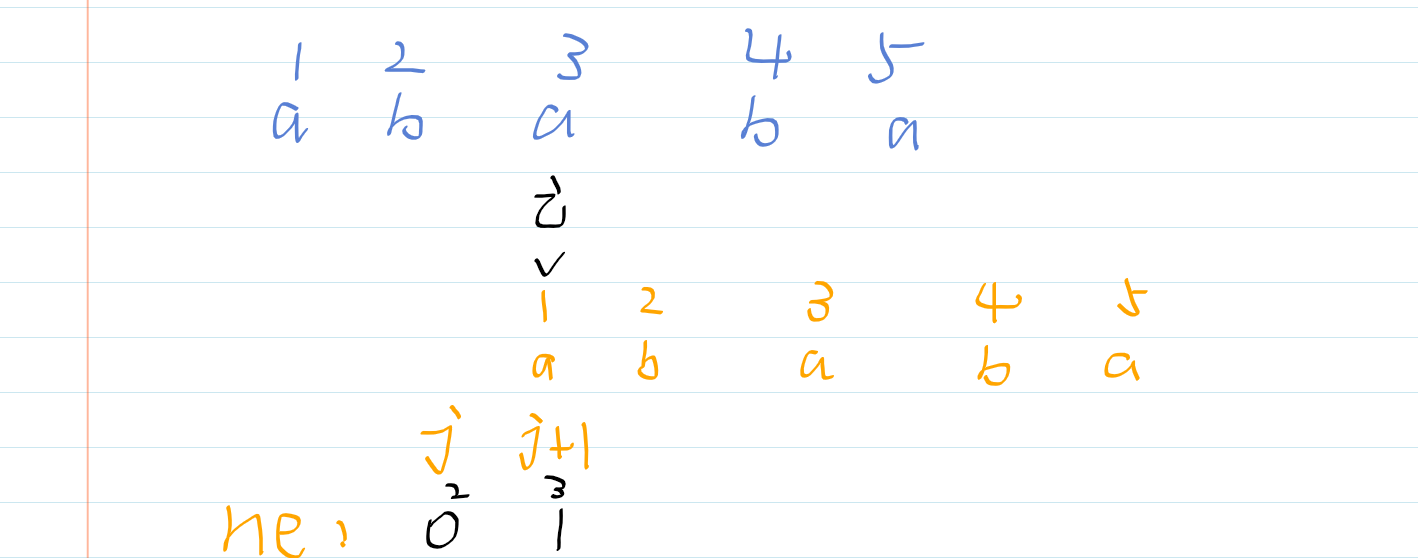 1 2 3 4 5
a b a b a
i
✓
1 2 3 4 5
a b a b a
j j+1
2 3
ne: 0 1